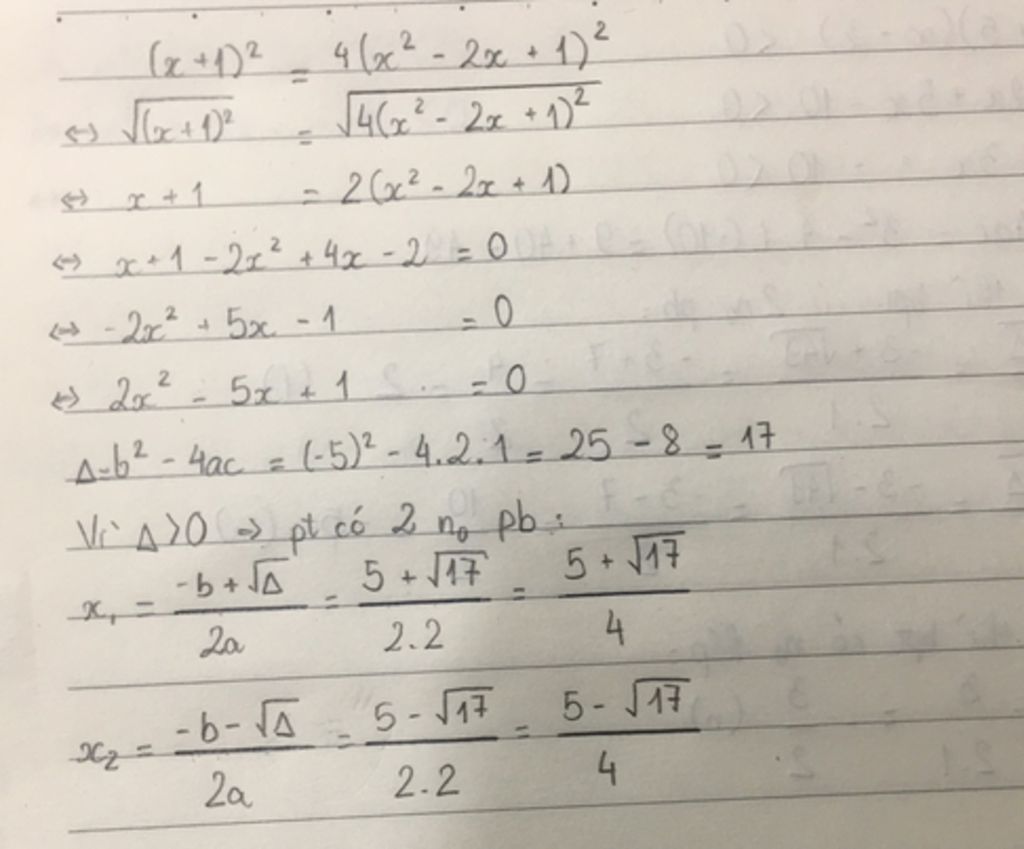 (x+1)² = 4(x² - 2x + 1)²
⇔ √(x+1)² = √4(x² - 2x + 1)²
⇔ x + 1 = 2(x² - 2x + 1)
⇔ x + 1 - 2x² + 4x - 2 = 0
⇔ -2x² + 5x - 1 = 0
⇔ 2x² - 5x + 1 = 0
Δ=b² - 4ac = (-5)² - 4.2.1 = 25 - 8 = 17
Vì Δ>0 ⇒ pt có 2 n₀ pb :
x₁ = (-b + √Δ)/2a = (5 + √17)/2.2 = (5 + √17)/4
x₂ = (-b - √Δ)/2a = (5 - √17)/2.2 = (5 - √17)/4